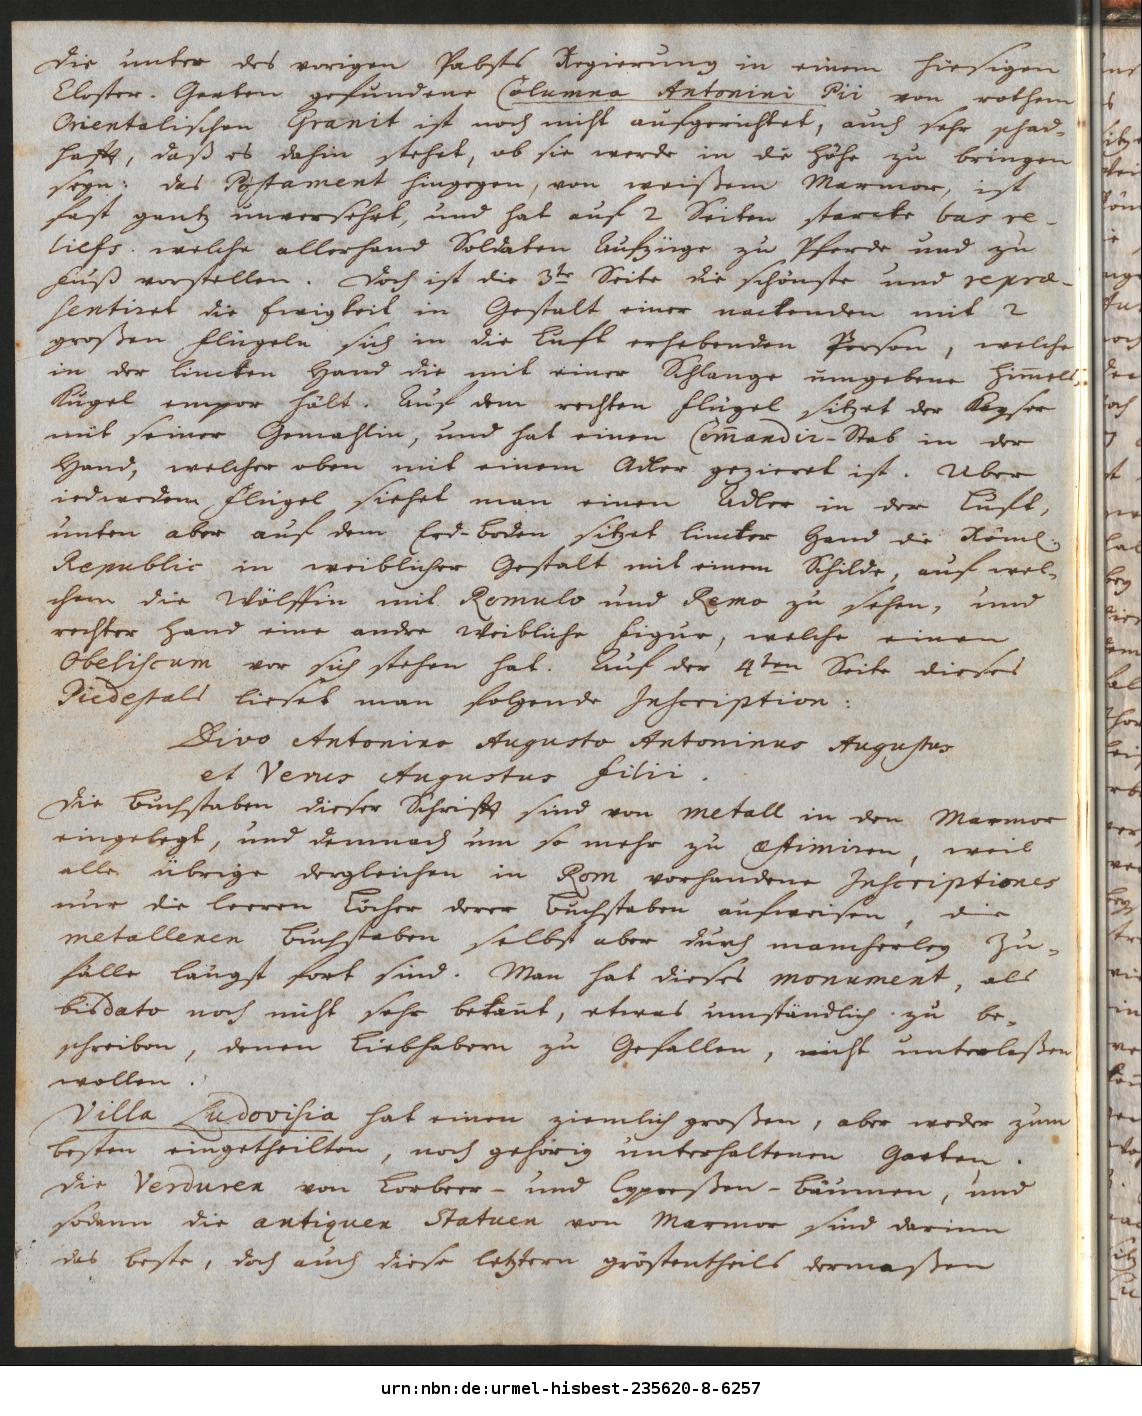 Die unter des vorigen Pabsts Regierung in einem hiesigen
Closter-Garten gefundene Columna Antonini Pii von rothem
Orientalischen Granit ist noch nicht aufgerichtet, auch sehr schad-
hafft, daß es dahin stehet, ob sie werde in die Höhe zu bringen
seyn: das Postament hingegen, von weißem Marmor, ist
fast gantz unversehrt, und hat auf 2 Seiten starcke bas re-
liefs. welche allerhand Soldaten Aufzüge zu Pferde und zu
Fuß vorstellen. Doch ist die 3te Seite die schönste und repræ-
sentiret die Ewigkeit in Gestalt einer nackenden mit 2
großen Flügeln sich in die Lufft erhebenden Person, welche
in der lincken Hand die mit einer Schlange umgebene Him̅els-
Kugel empor hält. Auf dem rechten Flügel sitzet der Kayser
mit seiner Gemahlin, und hat einen Com̅andir-Stab in der
Hand, welcher oben mit einem Adler gezieret ist. Uber
iedwedem Flügel siehet man einen Adler in der Lufft,
unten aber auf dem Erd-Boden sitzet lincker Hand die Röml.
Republic in weiblicher Gestalt mit einem Schilde, auf wel-
chem die Wölffin mit Romulo und Remo zu sehen, und
rechter Hand eine andre weibliche Figur, welche einen
Obeliscum vor sich stehen hat. Auf der 4ten Seite dieses
Piedestals lieset man folgende Inscription:
Divo Antonino Augusto Antoninus Augustus
et Verus Augustus filii.
Die Buchstaben dieser Schrifft sind von metall in den Marmor
eingelegt, und demnach um so mehr zu æstimiren, weil
alle übrige dergleichen in Rom vorhandene Inscriptiones
nur die leeren Löcher derer Buchstaben aufweisen, die
metallenen Buchstaben selbst aber durch mancherley Zu-
fälle längst fort sind. Man hat dieses monument, als
bisdato noch nicht sehr bekan̅t, etwas umständlich zu be-
schreiben, denen Liebhabern zu Gefallen, nicht unterlaßen
wollen.
Villa Ludovisia hat einen ziemlich großen, aber weder zum
besten eingetheilten, noch gehörig unterhaltenen Garten.
Die Verduren von Lorbeer- und Cypreßen-Bäumen, und
sodann die antiquen Statuen von Marmor sind darinn
das beste, doch auch diese letztern gröstentheils dermaßen
urn:nbn:de:urmel-hisbest-235620-8-6257